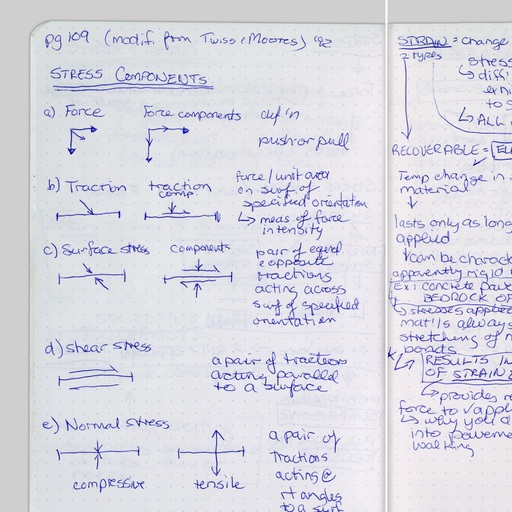 pg 109 (modif. from Twiss & Moores) '92
STRESS COMPONENTS
a) Force
Force components
def'n
push or pull
b) Traction
traction comp.
force / unit area
on surf of
specified orientation
↳ meas. of force
intensity
c) Surface stress
components
pair of equal
& opposite
tractions
acting across
surf of specified
orientation
d) shear stress
a pair of tractions
acting parallel
to a surface
e) Normal stress
compressive
tensile
a pair of
tractions
acting @
rt angles
to a surf
STRAIN = change
2 TYPES
stress
↳ diff
to s
↳ ALL
RECOVERABLE =
Temp change in
material
lasts only as long
applied
can be charact
apparently rigid
Ex: concrete pave
BEDROCK OF
↳ stresses applied
mat'l is always
stretching of
bonds
RESULTS IN
OF STRAIN
↳ provides
force to
↳ why you
into pavement
walking